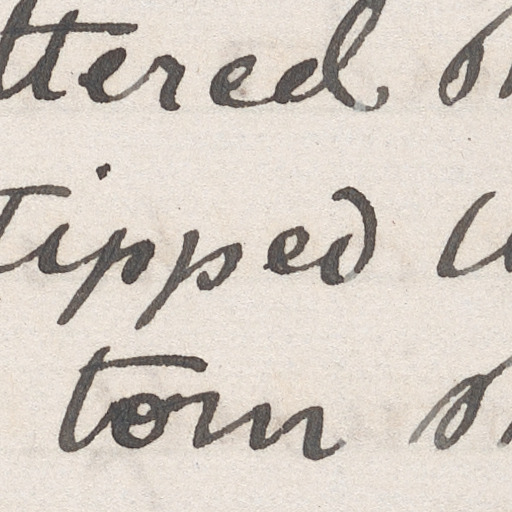 ttered
tipped
torn